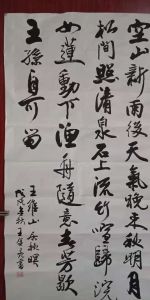 空山新雨後天氣晚來秋明月
松間照清泉石上流竹喧歸浣
女蓮動下漁舟隨意春芳歇
王孫自可留
王維山居秋暝
戊戌